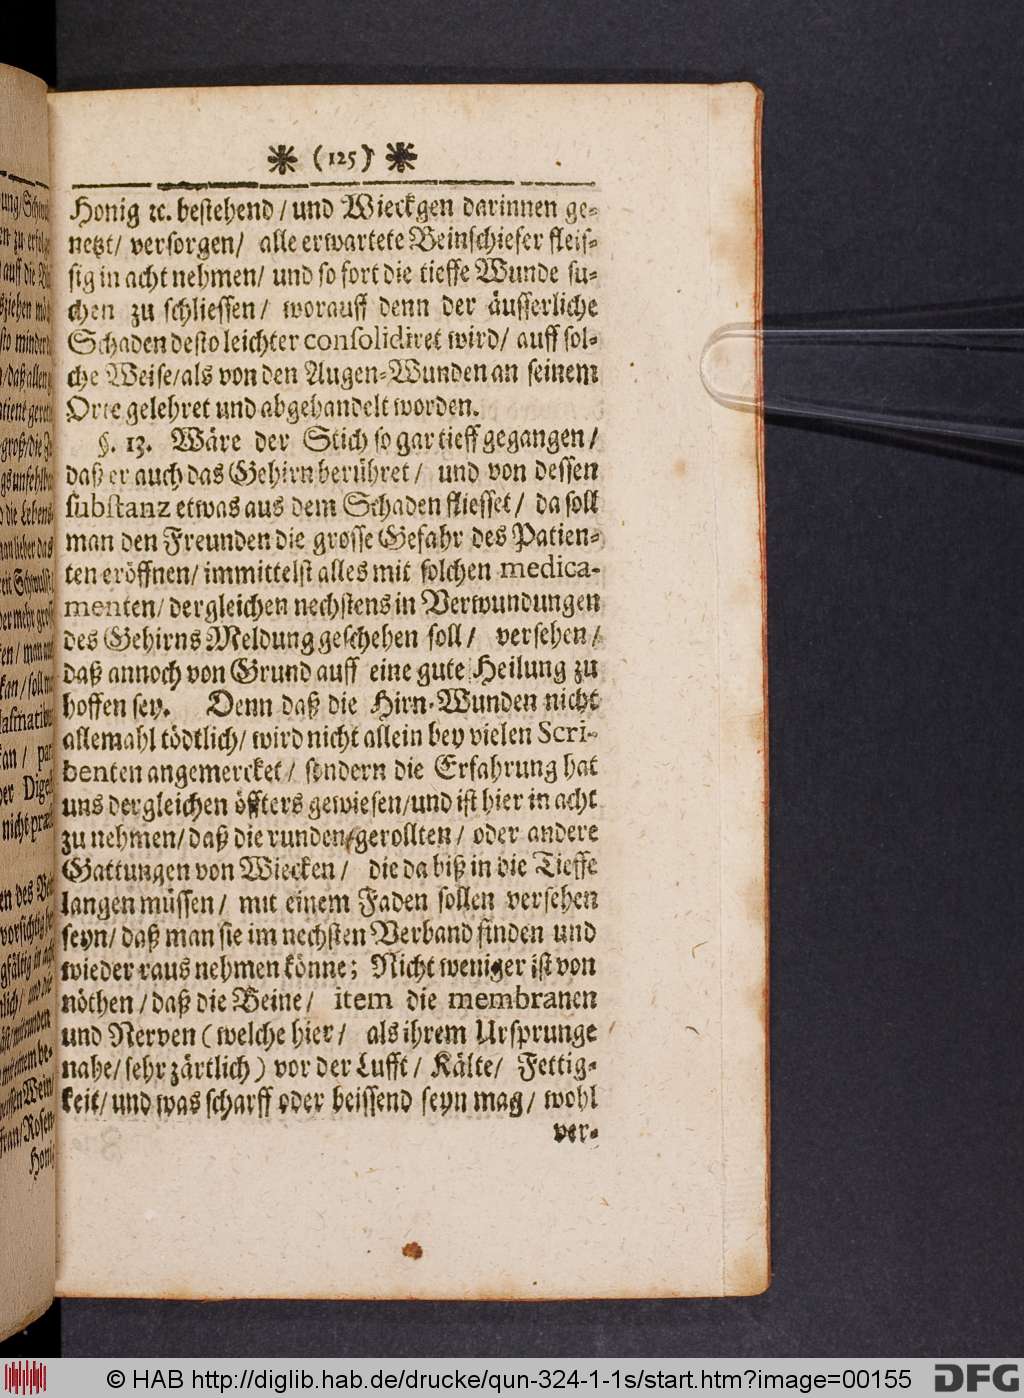 (125)
Honig ꝛc. bestehend / und Wieckgen darinnen ge-
netzt/ versorgen/ alle erwartete Beinschiefer fleis-
sig in acht nehmen/ und so fort die tieffe Wunde su-
chen zu schliessen/ worauff denn der äusserliche
Schaden desto leichter consolidiret wird/ auff sol-
che Weise/als von den Augen-Wunden an seinem
Orte gelehret und abgehandelt worden.
§. 13. Wäre der Stich so gar tieff gegangen/
daß er auch das Gehirn berühret/ und von dessen
substanz etwas aus dem Schaden fliesset/ da soll
man den Freunden die grosse Gefahr des Patien-
ten eröffnen/ immittelst alles mit solchen medica-
menten/ dergleichen nechstens in Verwundungen
des Gehirns Meldung geschehen soll/ versehen/
daß annoch von Grund auff eine gute Heilung zu
hoffen sey. Denn daß die Hirn-Wunden nicht
allemahl tödtlich/ wird nicht allein bey vielen Scri-
benten angemercket/ sondern die Erfahrung hat
uns dergleichen öffters gewiesen/und ist hier in acht
zu nehmen/ daß die runden/gerollten/ oder andere
Gattungen von Wiecken/ die da biß in die Tieffe
langen müssen/ mit einem Faden sollen versehen
seyn/ daß man sie im nechsten Verband finden und
wieder raus nehmen könne; Nicht weniger ist von
nöthen/ daß die Beine/ item die membranen
und Nerven (welche hier/ als ihrem Ursprunge
nahe/ sehr zärtlich) vor der Lufft/ Kälte/ Fettig-
keit/ und was scharff oder beissend seyn mag/ wohl
ver-
© HAB http://diglib.hab.de/drucke/qun-324-1-1s/start.htm?image=00155
DFG